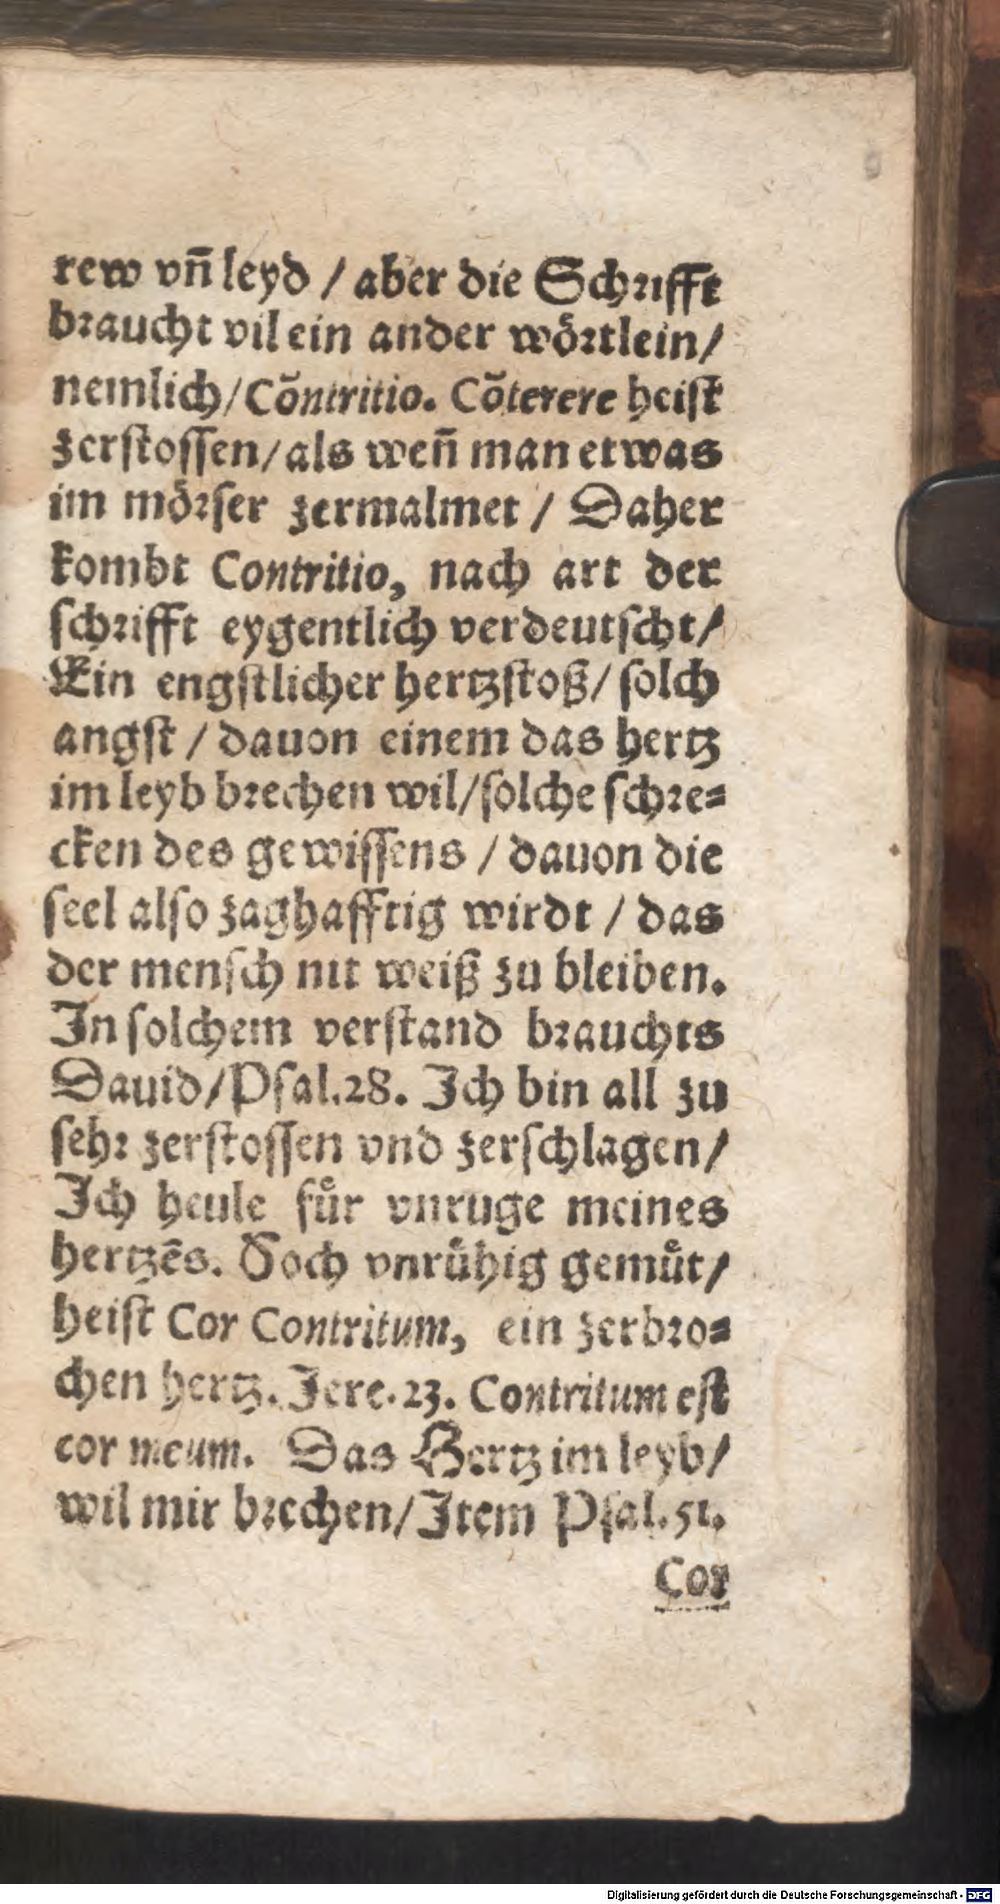 rew vñ leyd / aber die Schrifft
braucht vil ein ander wörtlein/
nemlich/Cõntritio. Cõterere heist
zerstossen/als weñ man etwas
im mörser zermalmet / Daher
kombt Contritio, nach art der
schrifft eygentlich verdeutscht/
Ein engstlicher hertzstoß/ solch
angst / dauon einem das hertz
im leyb brechen wil/solche schre=
cken des gewissens / dauon die
seel also zaghafftig wirdt / das
der mensch nit weiß zu bleiben.
In solchem verstand brauchts
Dauid/Psal.28. Ich bin all zu
sehr zerstossen vnd zerschlagen/
Ich heule für vnruge meines
hertzẽs. Doch vnrühig gemüt/
heist Cor Contritum, ein zerbro=
chen hertz. Jere.23. Contritum est
cor meum. Das Hertz im leyb/
wil mir brechen/Item Psal.51.
Cor
Digitalisierung gefördert durch die Deutsche Forschungsgemeinschaft - DFG